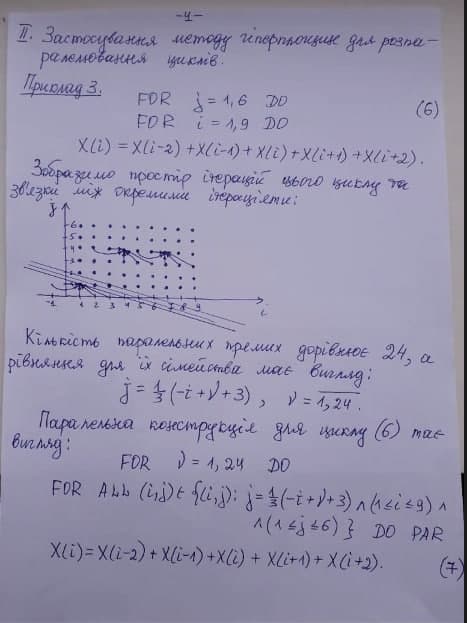 -4-
II. Застосування методу гіперплощин для розпа-
ралелювання циклів.
Приклад 3.
FOR j = 1,6 DO
(6)
FOR i = 1,9 DO
X(i) = X(i-2) + X(i-1) + X(i) + X(i+1) + X(i+2).
Зобразимо простір ітерацій цього циклу та
зв'язки між окремими ітераціями:
j
6
5
4
3
2
1
-1 1 2 3 4 5 6 7 8 9 i
Кількість паралельних прямих дорівнює 24, а
рівняння для їх сімейства має вигляд:
j = 1/3 (-i + ν + 3), ν = 1,24.
Паралельна конструкція для циклу (6) має
вигляд:
FOR ν = 1,24 DO
FOR ALL (i,j) ∈ {(i,j): j = 1/3 (-i + ν + 3) ∧ (1 ≤ i ≤ 9) ∧
∧ (1 ≤ j ≤ 6) } DO PAR
X(i) = X(i-2) + X(i-1) + X(i) + X(i+1) + X(i+2). (7)